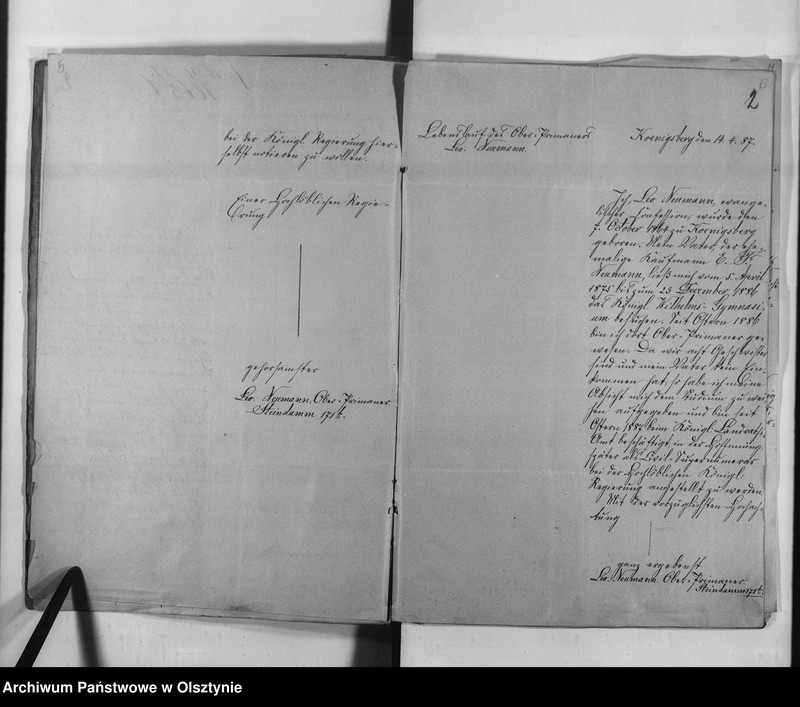 5
bei der Königl. Regierung hier-
selbst notieren zu wollen.
Einer Hochlöblichen Regie-
rung
gehorsamster
Leo. Neumann, Ober-Primaner
Steindamm 171b.
6
2
Lebenslauf des Ober-Primaners
Leo. Neumann.
Koenigsberg den 14. 4. 87.
Ich, Leo Neumann, evange-
lischer Confession, wurde den
7. October zu Koenigsberg
geboren. Mein Vater, der ehe-
malige Kaufmann E.
Neumann, ließ mich vom 5. April
1875 bis zum 23 December 1886
das Königl. Wilhelms-Gymnasi-
um besuchen. Seit Ostern 1886
bin ich dort Ober-Primaner ge-
wesen. Da wir acht Geschwister
sind und mein Vater kein Ein-
kommen hat, so habe ich meine
Absicht mich dem Studium zu wei-
hen aufgegeben und bin seit
Ostern beim Königl. Landraths-
Amt beschäftigt, in der Hoffnung
später als Civil-Supernumerar
bei der Hochlöblichen Königl.
Regierung angestellt zu werden.
Mit der vorzüglichsten Hochach-
tung
ganz ergebenst
Leo. Neumann. Ober-Primaner.
Steindamm 171b.
Archiwum Państwowe w Olsztynie